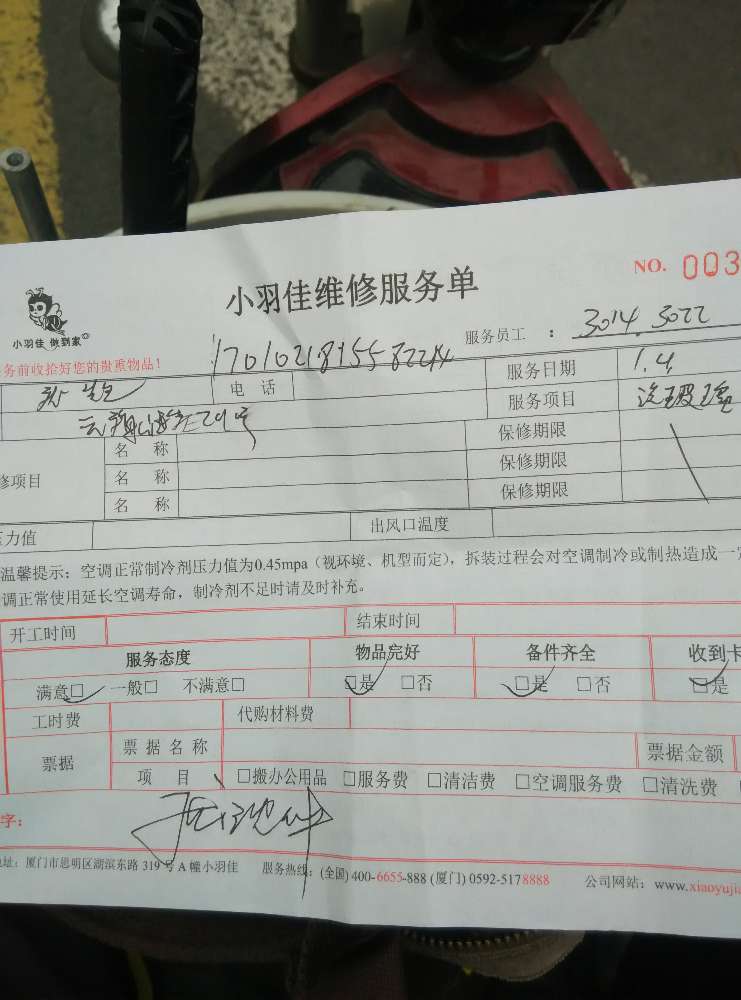 小羽佳维修服务单
NO. 003
小羽佳 做到家
务前收拾好您的贵重物品！
服务员工 ： 3014.3022
电 话
服务日期 1.4
服务项目 洗玻璃
修项目
名 称
保修期限
名 称
保修期限
名 称
保修期限
压力值
出风口温度
温馨提示：空调正常制冷剂压力值为0.45mpa（视环境、机型而定），拆装过程会对空调制冷或制热造成一定
调正常使用延长空调寿命，制冷剂不足时请及时补充。
开工时间
结束时间
服务态度 物品完好 备件齐全 收到卡
满意□ 一般□ 不满意□ □是 □否 □是 □否 □是
工时费
代购材料费
票据
票据名称
票据金额
项 目 □搬办公用品 □服务费 □清洁费 □空调服务费 □清洗费
字：
地址：厦门市思明区湖滨东路 319 号 A 幢小羽佳 服务热线：(全国) 400-6655-888 (厦门) 0592-5178888 公司网站：www.xiaoyujia